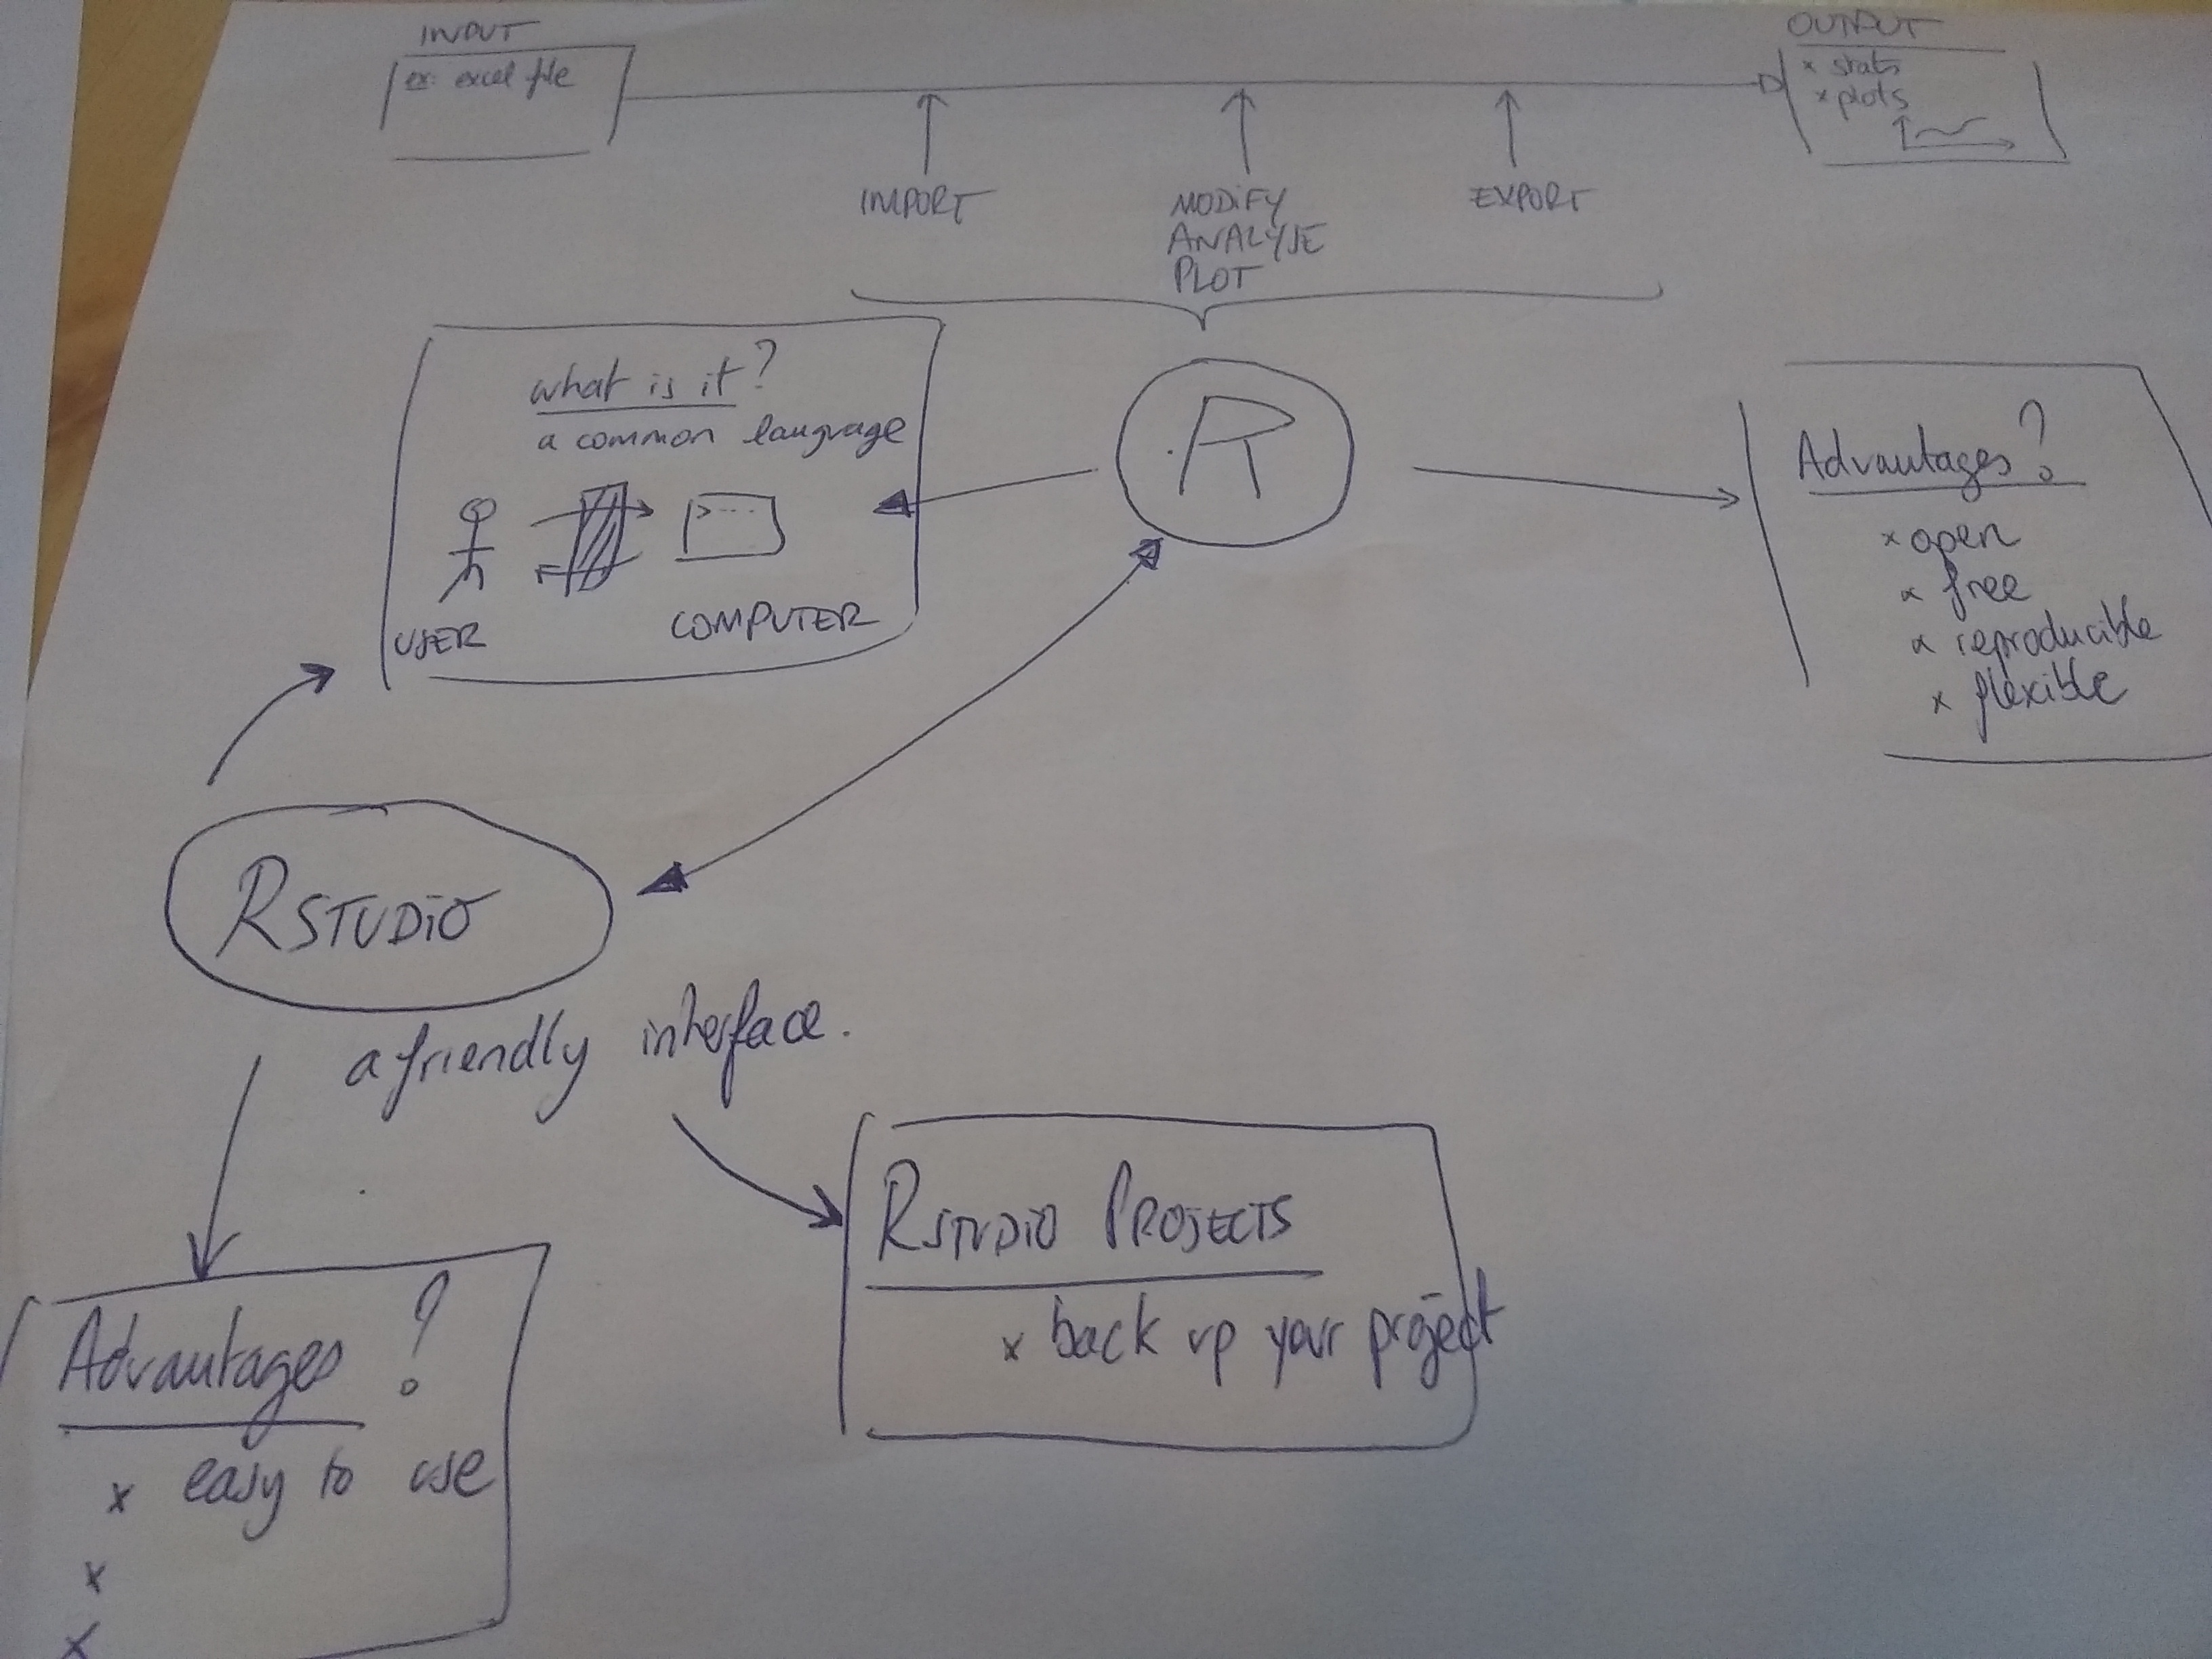 INPUT
ex: excel file
OUTPUT
x stats
x plots
IMPORT
MODIFY
ANALYSE
PLOT
EXPORT
what is it?
a common language
>---
USER
COMPUTER
R
Advantages?
x open
x free
x reproducible
x flexible
RSTUDIO
a friendly interface.
RSTUDIO PROJECTS
x back up your project
Advantages?
x easy to use
x
x